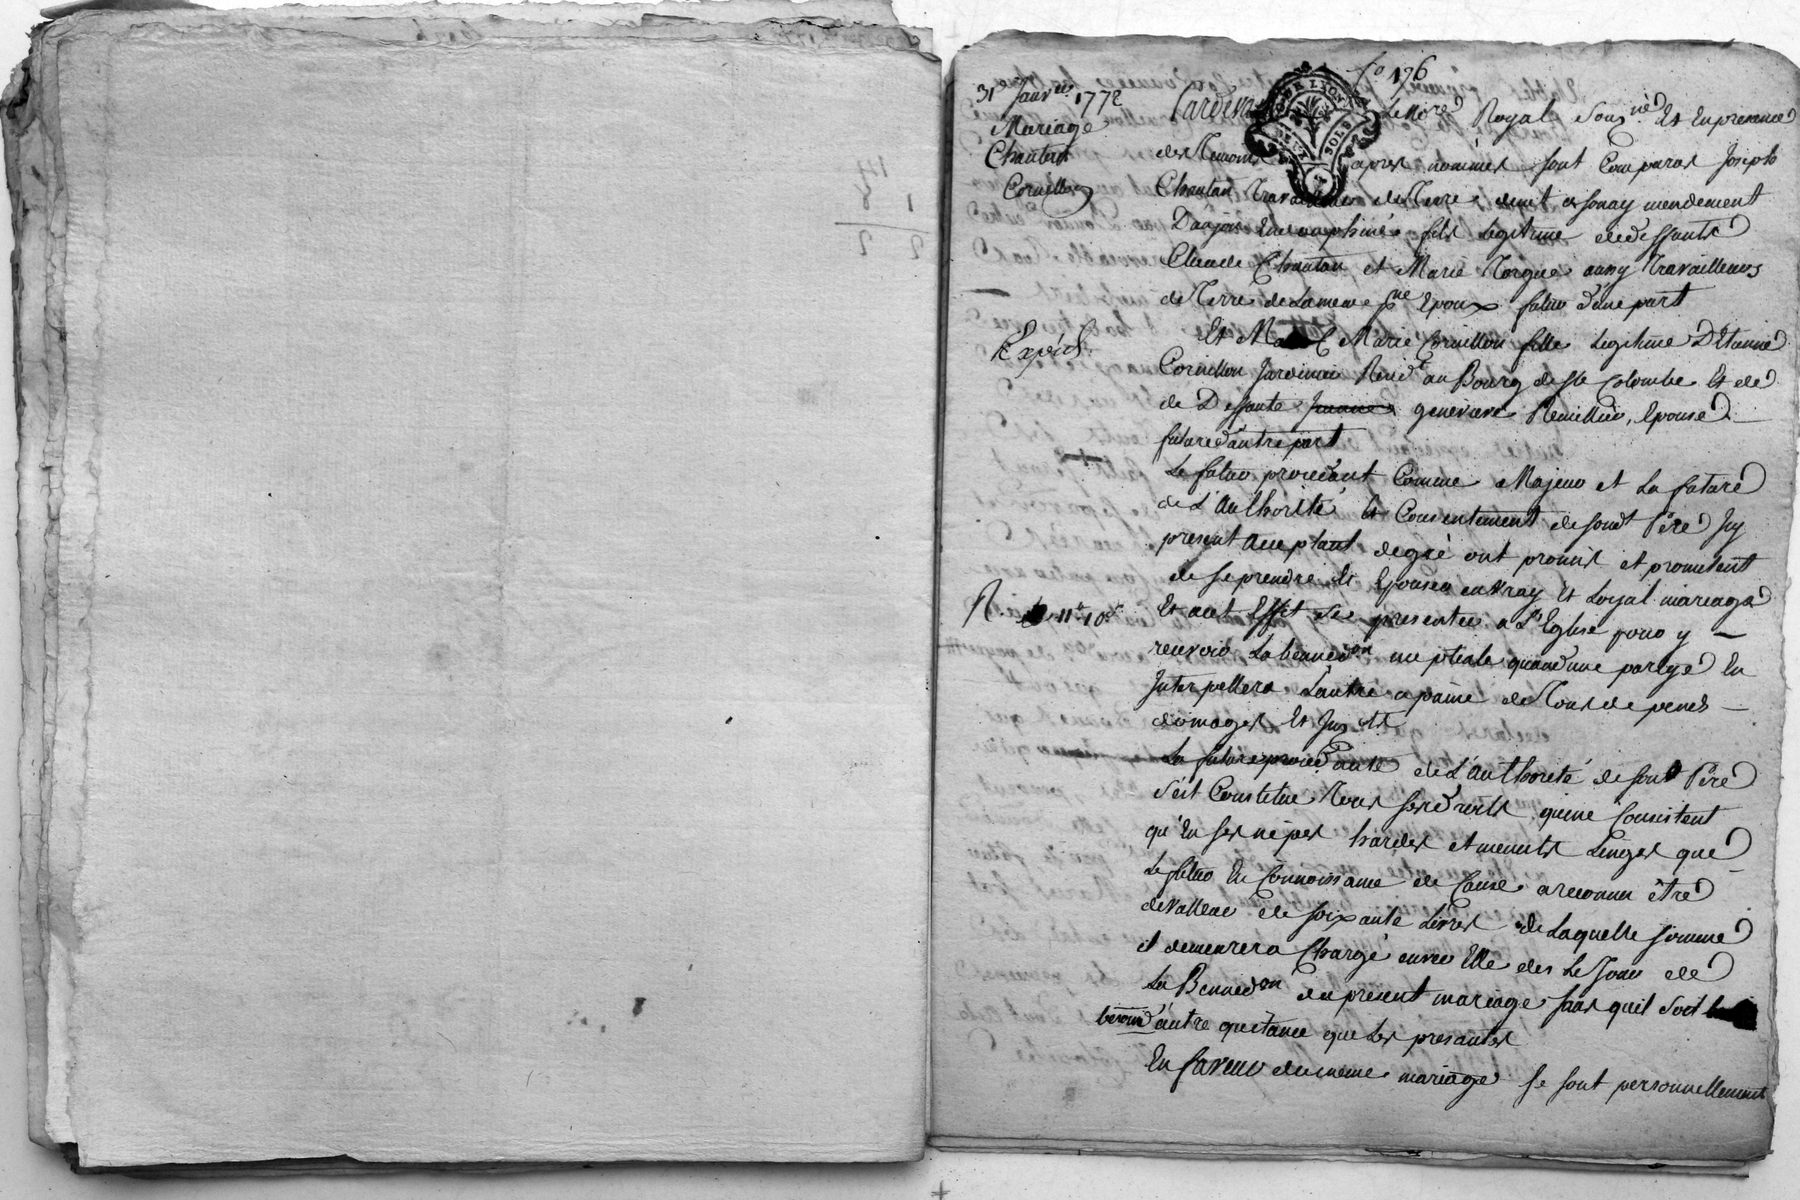 fo 176
31e Janver 1772
Mariage
Chautan
Cornillon
Expéd.
R. 11t 10s
Pardevant Le Nore Royal sousné Et En presence
des Temoins apres nommés sont Comparas Joseph
Chautan Travailleur de Terre de mendement
D'anjou En dauphiné fils Legitime de deffunts
Claude Chautan et Marie Torgue aussy Travailleurs
de Terre de La meme Epoux futur d'une part
Et Marie Cornillon fille Legitime D'Etienne
Cornillon Jardinier Resid. au Bourg de Ste Colombe Et de
de Deffunte genevieve Remillieu, Epouse
future d'autre part
Le futur procedant Comme Majeur et La future
de L'authorité Et Consentement de sond Père Icy
present acceptant de gré ont promis et promettent
de se prendre Et Epouser en vray Et Loyal mariage
Et a cet Effet se presenter a L'Eglise pour y
recevoir La benedon nuptiale quand une partye En
Interpellera L'autre a paine de Tous depens
domages Et Intts
La future procedante de L'authorité de sond Père
s'est Constitue Tous ses droits qui ne Consistent
qu'En ses nipes hardes et menuts Linges que
Le futur En Connoissance de Cause a reconnu être
de valleur de soixante Livres de Laquelle somme
il demeurera Chargé envers Elle des Le Jour de
La Bennedon du present mariage sans quil soit
besoin d'autre quittance que Les presantes
En faveur du meme mariage se sont personnellement